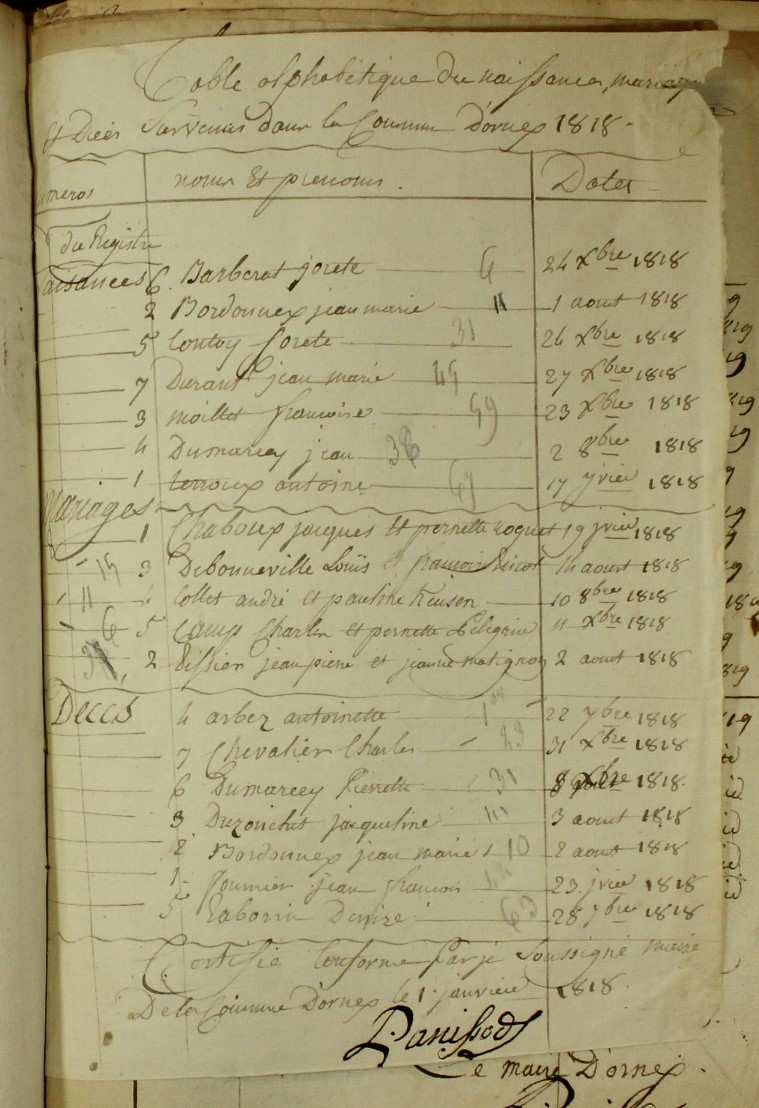 Table alphabétique du naissances, mariages
Et Décès survenus dans la Commune D'ornex 1818.
numeros noms Et prenoms. Dates
du Registre
naisances 6 Barberat josete 6 24 Xbre 1818
2 Bordonnex jean marie 11 1 aout 1818
5 Contoy josete 31 26 Xbre 1818
7 Durant jean marie 45 27 Xbre 1818
3 moillet francoise 59 23 Xbre 1818
4 Dumarcey jean 38 2 8bre 1818
1 Leroux antoine 67 17 jvier 1818
Mariages
1 Chaboux jacques Et pernette roquet 19 jvier 1818
15 3 Debonneville Louïs et francoise 14 aout 1818
11 4 Collet andré et pauline 10 8bre 1818
6 5 Camp Charles et pernette Pelegrin 11 Xbre 1818
31 2 Tissier jean pierre et jeanne matignon 2 aout 1818
Deccs 4 arbez antoinette 22 7bre 1818
7 Chevalier Charles 23 31 Xbre 1818
6 Dumarcey Pernette 31 8 Xbre 1818
3 Duzonchet jacqueline 3 aout 1818
2 Bordonnex jean marie 10 2 aout 1818
1 fournier jean francois 23 jvier 1818
5 Laborin Denize 63 28 7bre 1818
Certifié Conforme Par je Soussigné maire
De la Commune D'ornex le 1 janvier 1818.
Panissod
Le maire D'ornex.